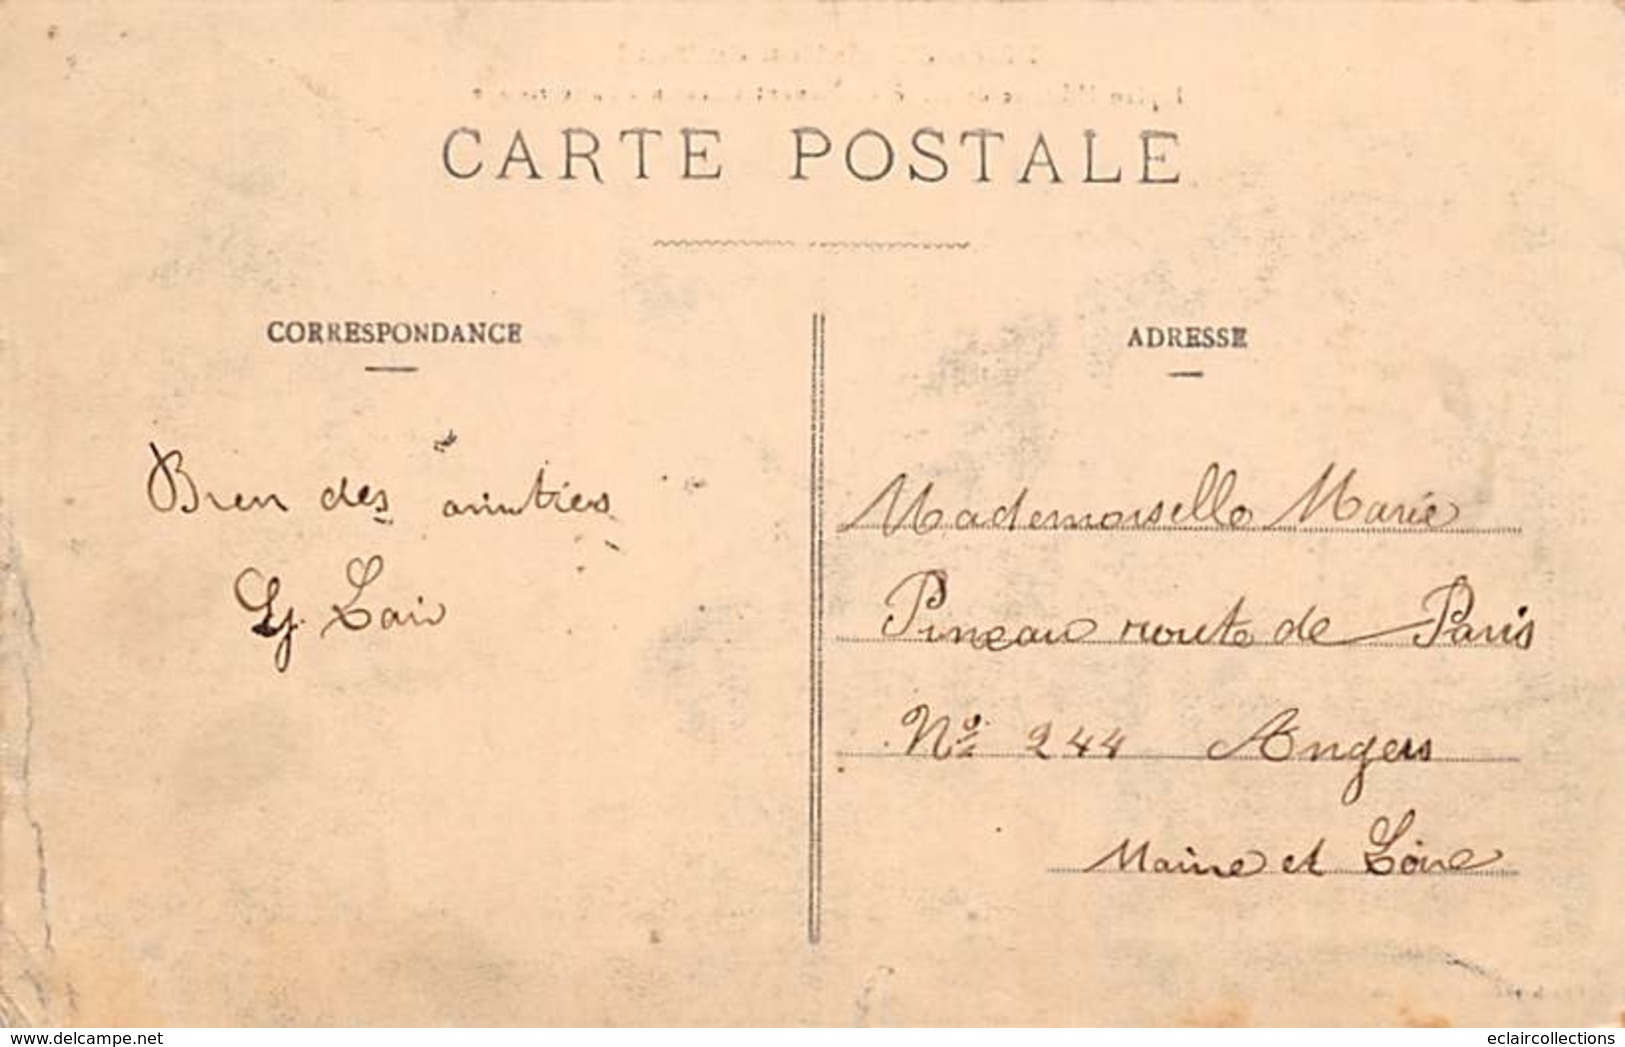 CARTE POSTALE
CORRESPONDANCE
ADRESSE
Bien des amitiés
Lair
Mademoiselle Marie
Pineau route de Paris
Nº 244 Angers
Maine et Loire
www.delcampe.net
eclaircollections